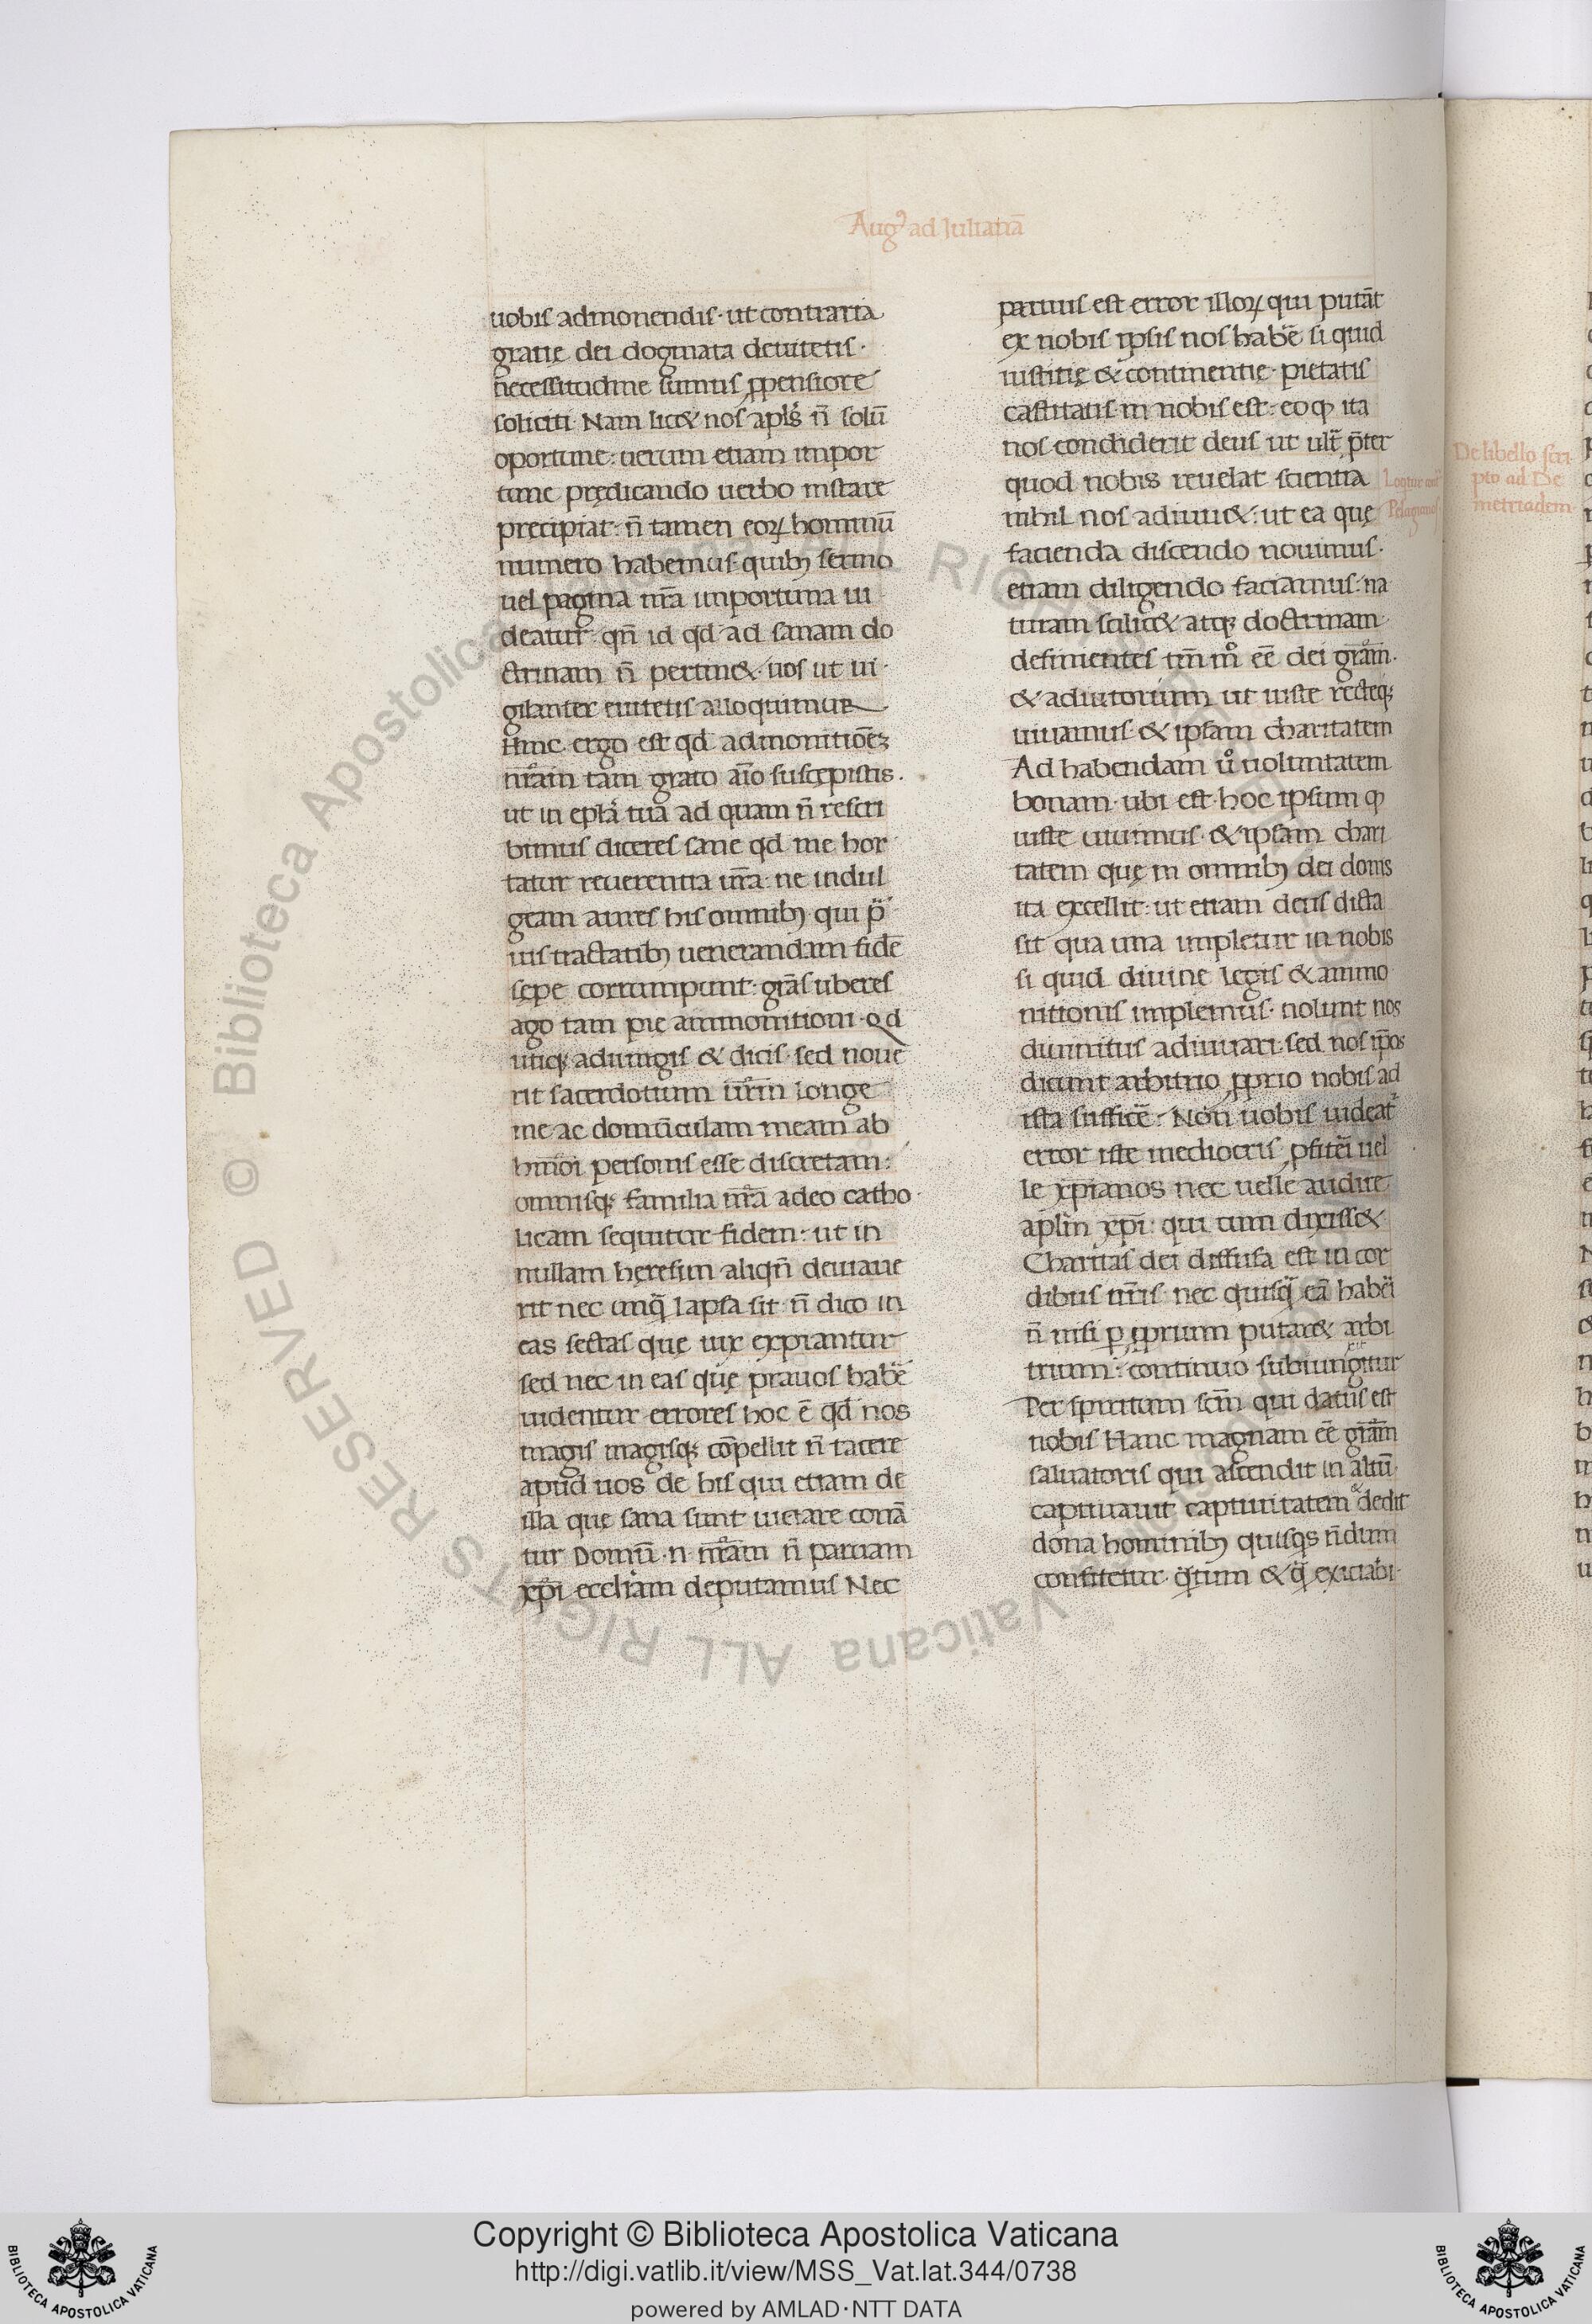 Augꝰ ad Iulianā
uobis admonendis· ut contraria
gratię dei dogmata deuitetis·
necessitudine sumus ꝓpensiore
soliciti· Nam lic& nos apl's n̄ solū
oportune: uerum etiam impor
tune prędicando uerbo instare
precipiat· n̄ tamen eoꝝ hominū
numero habemus· quibꝫ sermo
uel pagina nr̄a importuna ui
deatur· qn̄ id qd̄ ad sanam do
ctrinam n̄ pertin&· uos ut ui·
gilanter euitetis alloquimur
Hinc ergo est qd̄ admonitiōeꝫ
nr̄am tam grato aīo suscępistis·
ut in epl'a tua ad quam n̄ rescri
bimus diceres sane qd̄ me hor
tatur reuerentia ur̄a· ne indul
geam aures his omnibꝫ qui p̄
uis tractatibꝫ uenerandam fidē
sępe corrumpunt· gr̄as uberes
ago tam pię ammonitioni· Qd
utiqꝫ adiungis & dicis· sed noue
rit sacerdotium ur̄m longe
me ac domunculam meam ab
hm̄oi personis esse discretam:
omnisqꝫ familia nr̄a adeo catho
licam sequitur fidem: ut in
nullam hęresim aliqn̄ deuiaue
rit nec unq̄ lapsa sit· n̄ dico in
eas sectas quę uix expiantur
sed nec in eas quę prauos habē
uidentur errores hoc ē qd̄ nos
magis magisqꝫ cōpellit n̄ tacere
apud uos de his qui etiam de
illa que sana sunt uietare conā
tur Domū·n· nr̄am n̄ paruam
xp̄i eccl'iam deputamus Nec
paruus est error illoꝝ qui putāt
ex nobis ipsis nos habē si quid
iustitię & continentię· pietatis
castitatis in nobis est· eo ꝙ ita
nos condiderit deus ut ult̄ p̄ter
quod nobis reuelat scientia
nihil nos adiuu&: ut ea quę
facienda discendo nouimus·
etiam diligendo faciamus· na
turam scilic& atqꝫ doctrinam
definientes tm̄m° eē dei gr̄am·
& adiutorium ut iuste recteqꝫ
uiuamus· & ipsam charitatem
Ad habendam u° uoluntatem
bonam· ubi est· hoc ipsum ꝙ
iuste uiuimus· & ipsam chari
tatem quę in omnibꝫ dei donis
ita excellit: ut etiam deus dicta
sit qua una impletur in nobis
si quid diuinę legis & ammo
nitionis implemus· nolunt nos
diuinitus adiuuari· sed nos ip̄os
dicunt arbitrio ꝓprio nobis ad
ista sufficē· Non uobis uideat'
error iste mediocris ꝓfitēi uel
le xp̄ianos nec uelle audire
apl'm xp̄i· qui cum dixiss&
Charitas dei diffusa est in cor
dibus nr̄is· nec quisq̄ eā habēi
n̄ nisi ꝑ ꝓprium putar& arbi
trium: continuo subiungitur
Per spiritum scm̄ qui datus est
nobis Hanc magnam eē gr̄am
saluatoris qui ascendit in altū·
captiuauit captiuitatem & dedit
dona hominibꝫ quisqs n̄dum
confitetur· q̄tum & q̄ exiciabi
Loqtur cont̄
Pelagianos
De libello scri
pto ad De
metriadem
© Biblioteca Apostolica Vaticana ALL RIGHTS RESERVED
Copyright © Biblioteca Apostolica Vaticana
http://digi.vatlib.it/view/MSS_Vat.lat.344/0738
powered by AMLAD·NTT DATA
BIBLIOTECA APOSTOLICA VATICANA
BIBLIOTECA APOSTOLICA VATICANA